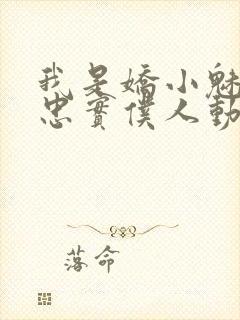 我是嬌小魅
忠實僕人動
落命